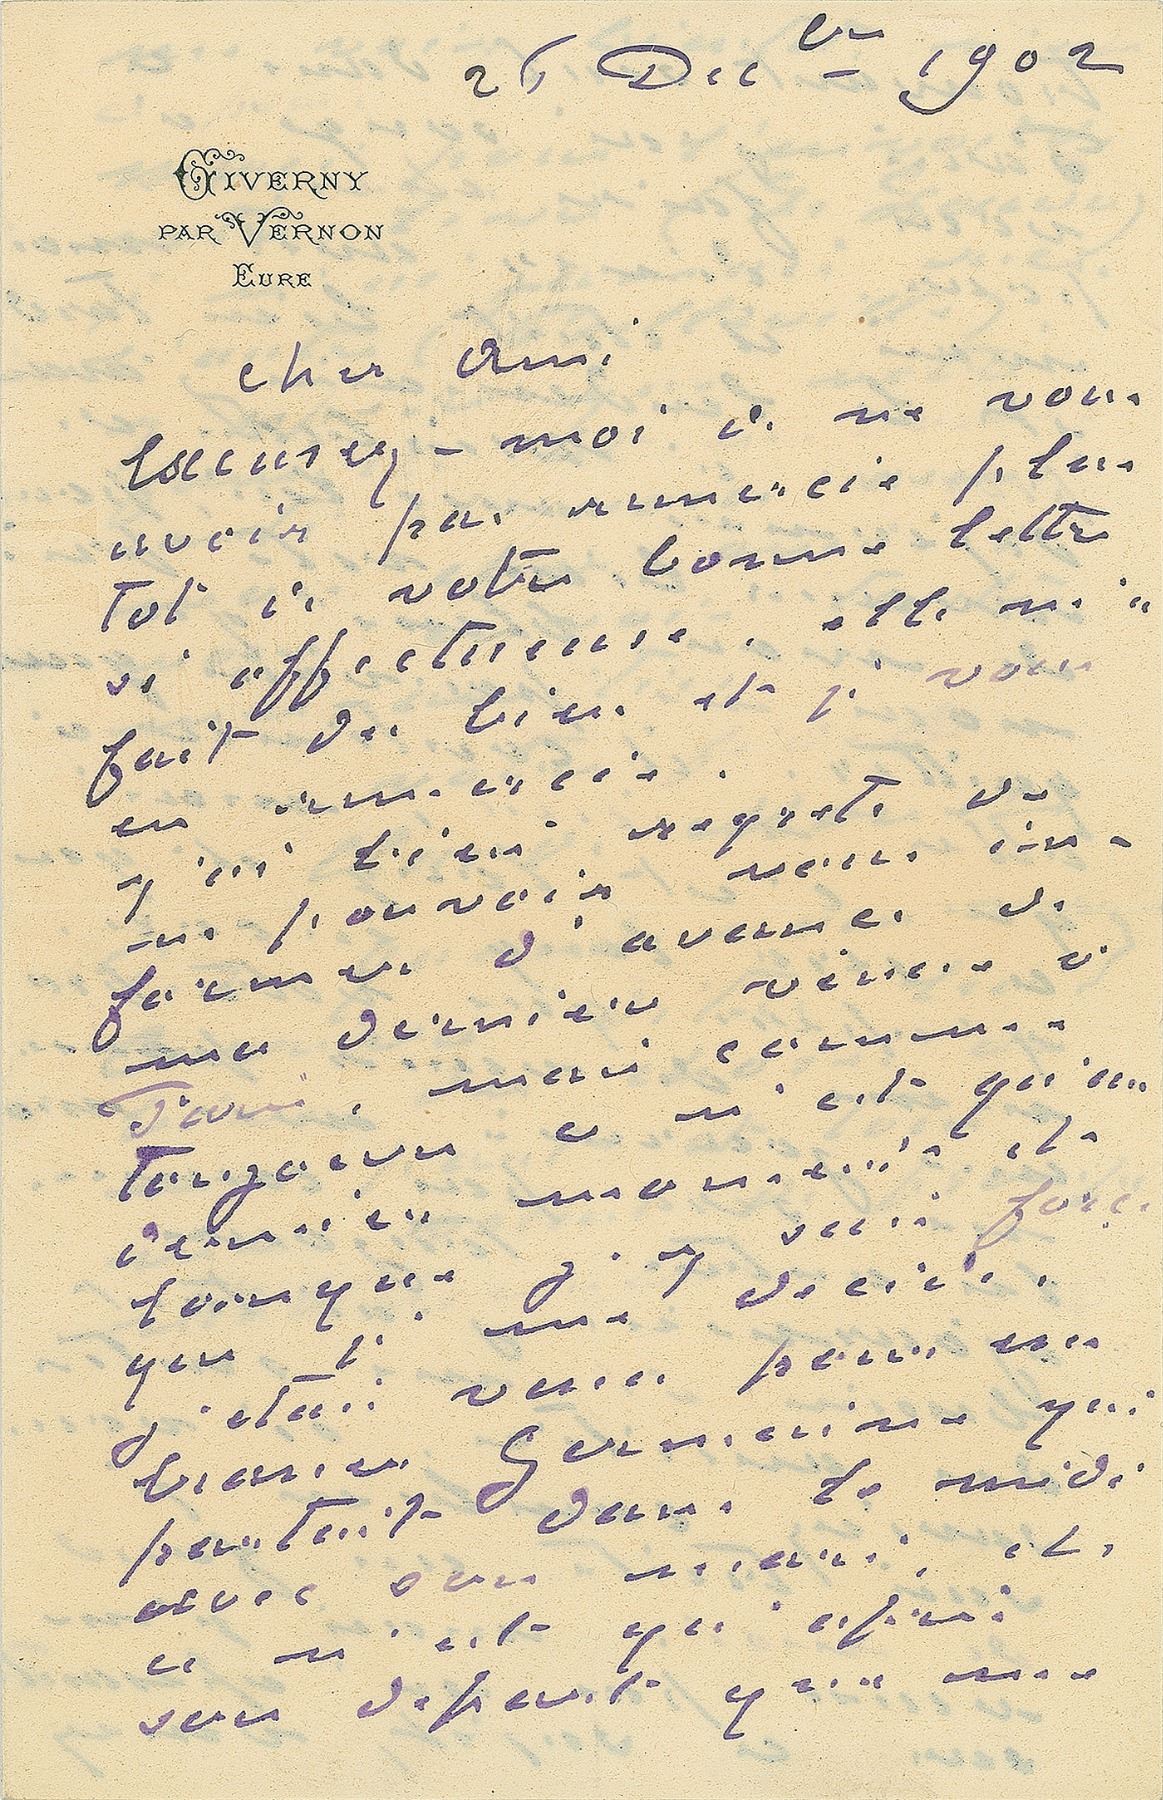 26 Dec bre 1902
GIVERNY
PAR VERNON
EURE
cher Ami
Excusez-moi de ne vous
avoir pas remercié plus
tot de votre bonne lettre
si affectueuse, elle m'a
fait du bien et je vous
en remercie.
J'ai bien regretté de
ne pouvoir vous in-
former d'avance de
ma dernière venue à
Paris, mais comme
toujours ce n'est qu'au
dernier moment et
lorsque j'y suis forcé
que je me décide,
j'étais venu pour ma
Germaine qui
partait dans le midi
avec son mari, et
ce n'est qu'après
son départ que me